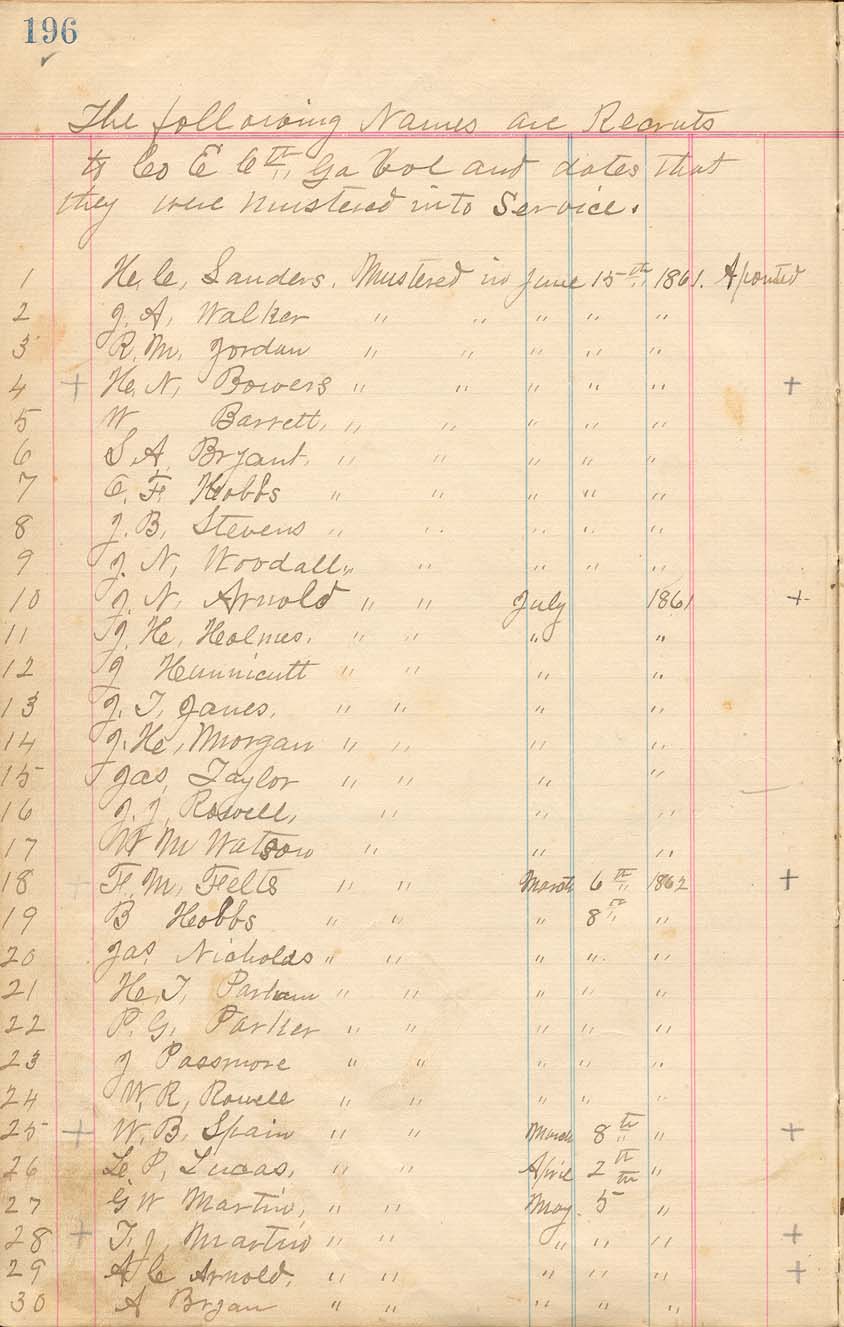 196
✓
The following Names are Recruts
to Co E 6th Ga Vol and dates that
they were Mustered into Service.
1 H. C, Sanders. Mustered in June 15th 1861. Aponted
2 J. A, Walker " " " " "
3 R. M, Jordan " " " " "
4 + H. N, Bowers " " " " " +
5 W Barrett, " " " " "
6 S. A, Bryant, " " " " "
7 C. F. Hobbs " " " " "
8 J. B, Stevens " " " " "
9 J. N, Woodall, " " " " "
10 J. N, Arnold " " July 1861 +
11 J. H, Holmes, " " " "
12 J Hunnicutt " " " "
13 J. T, Janes, " " " "
14 J. H, Morgan " " " "
15 Jas, Taylor " " " "
16 J. J, Rowell, " " "
17 W M Watson " " "
18 + F. M, Felts " " March 6th 1862 +
19 B Hobbs " " " 8th "
20 Jas, Nicholds " " " " "
21 H. T, Parham " " " " "
22 P. G, Parker " " " " "
23 J Passmore " " " " "
24 W, R, Rowell " " " " "
25 + W, B, Spain " " March 8th " +
26 L. P, Lucas, " " April 2th "
27 G W Martin, " " May. 5th "
28 + T. J, Martin " " " " " +
29 A C Arnold, " " " " " +
30 A Bryan " " " " "